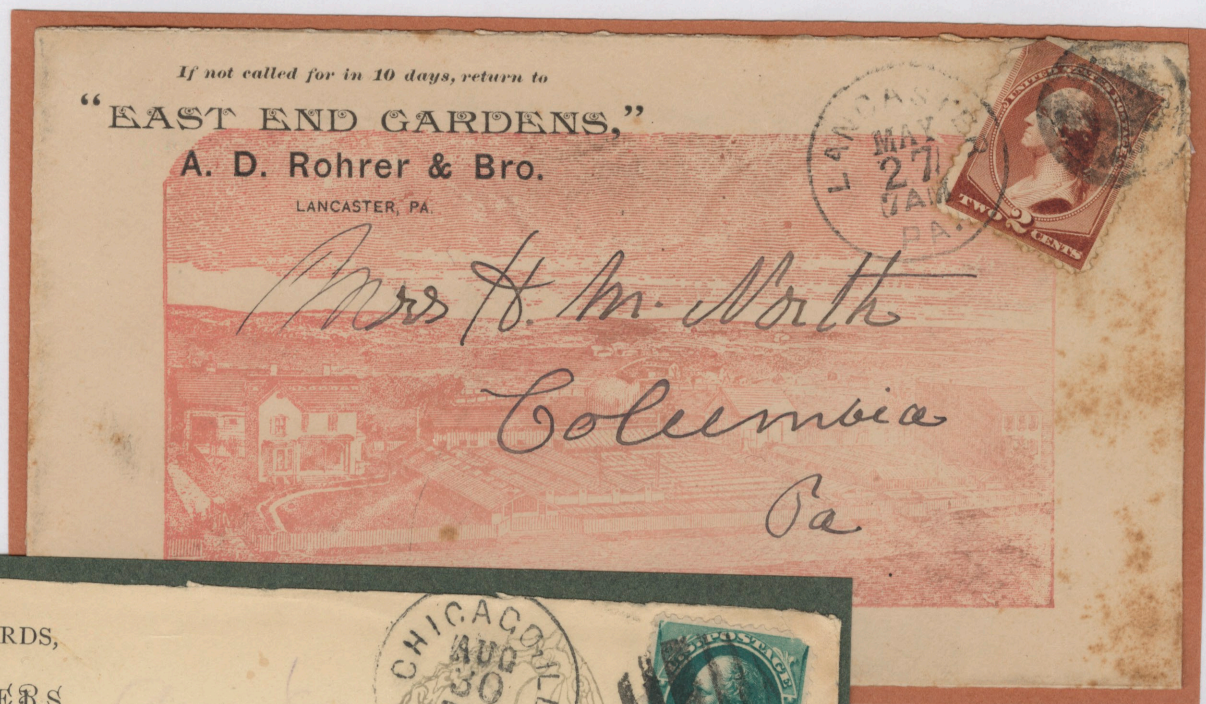 If not called for in 10 days, return to
"EAST END GARDENS,"
A. D. Rohrer & Bro.
LANCASTER, PA.
LANCASTER
MAY
27
7 AM
PA.
UNITED STATES POSTAGE
TWO 2 CENTS
Mrs H. M. North
Columbia
Pa
RDS,
ERS
CHICAGO, ILL
AUG
30
U.S. POSTAGE